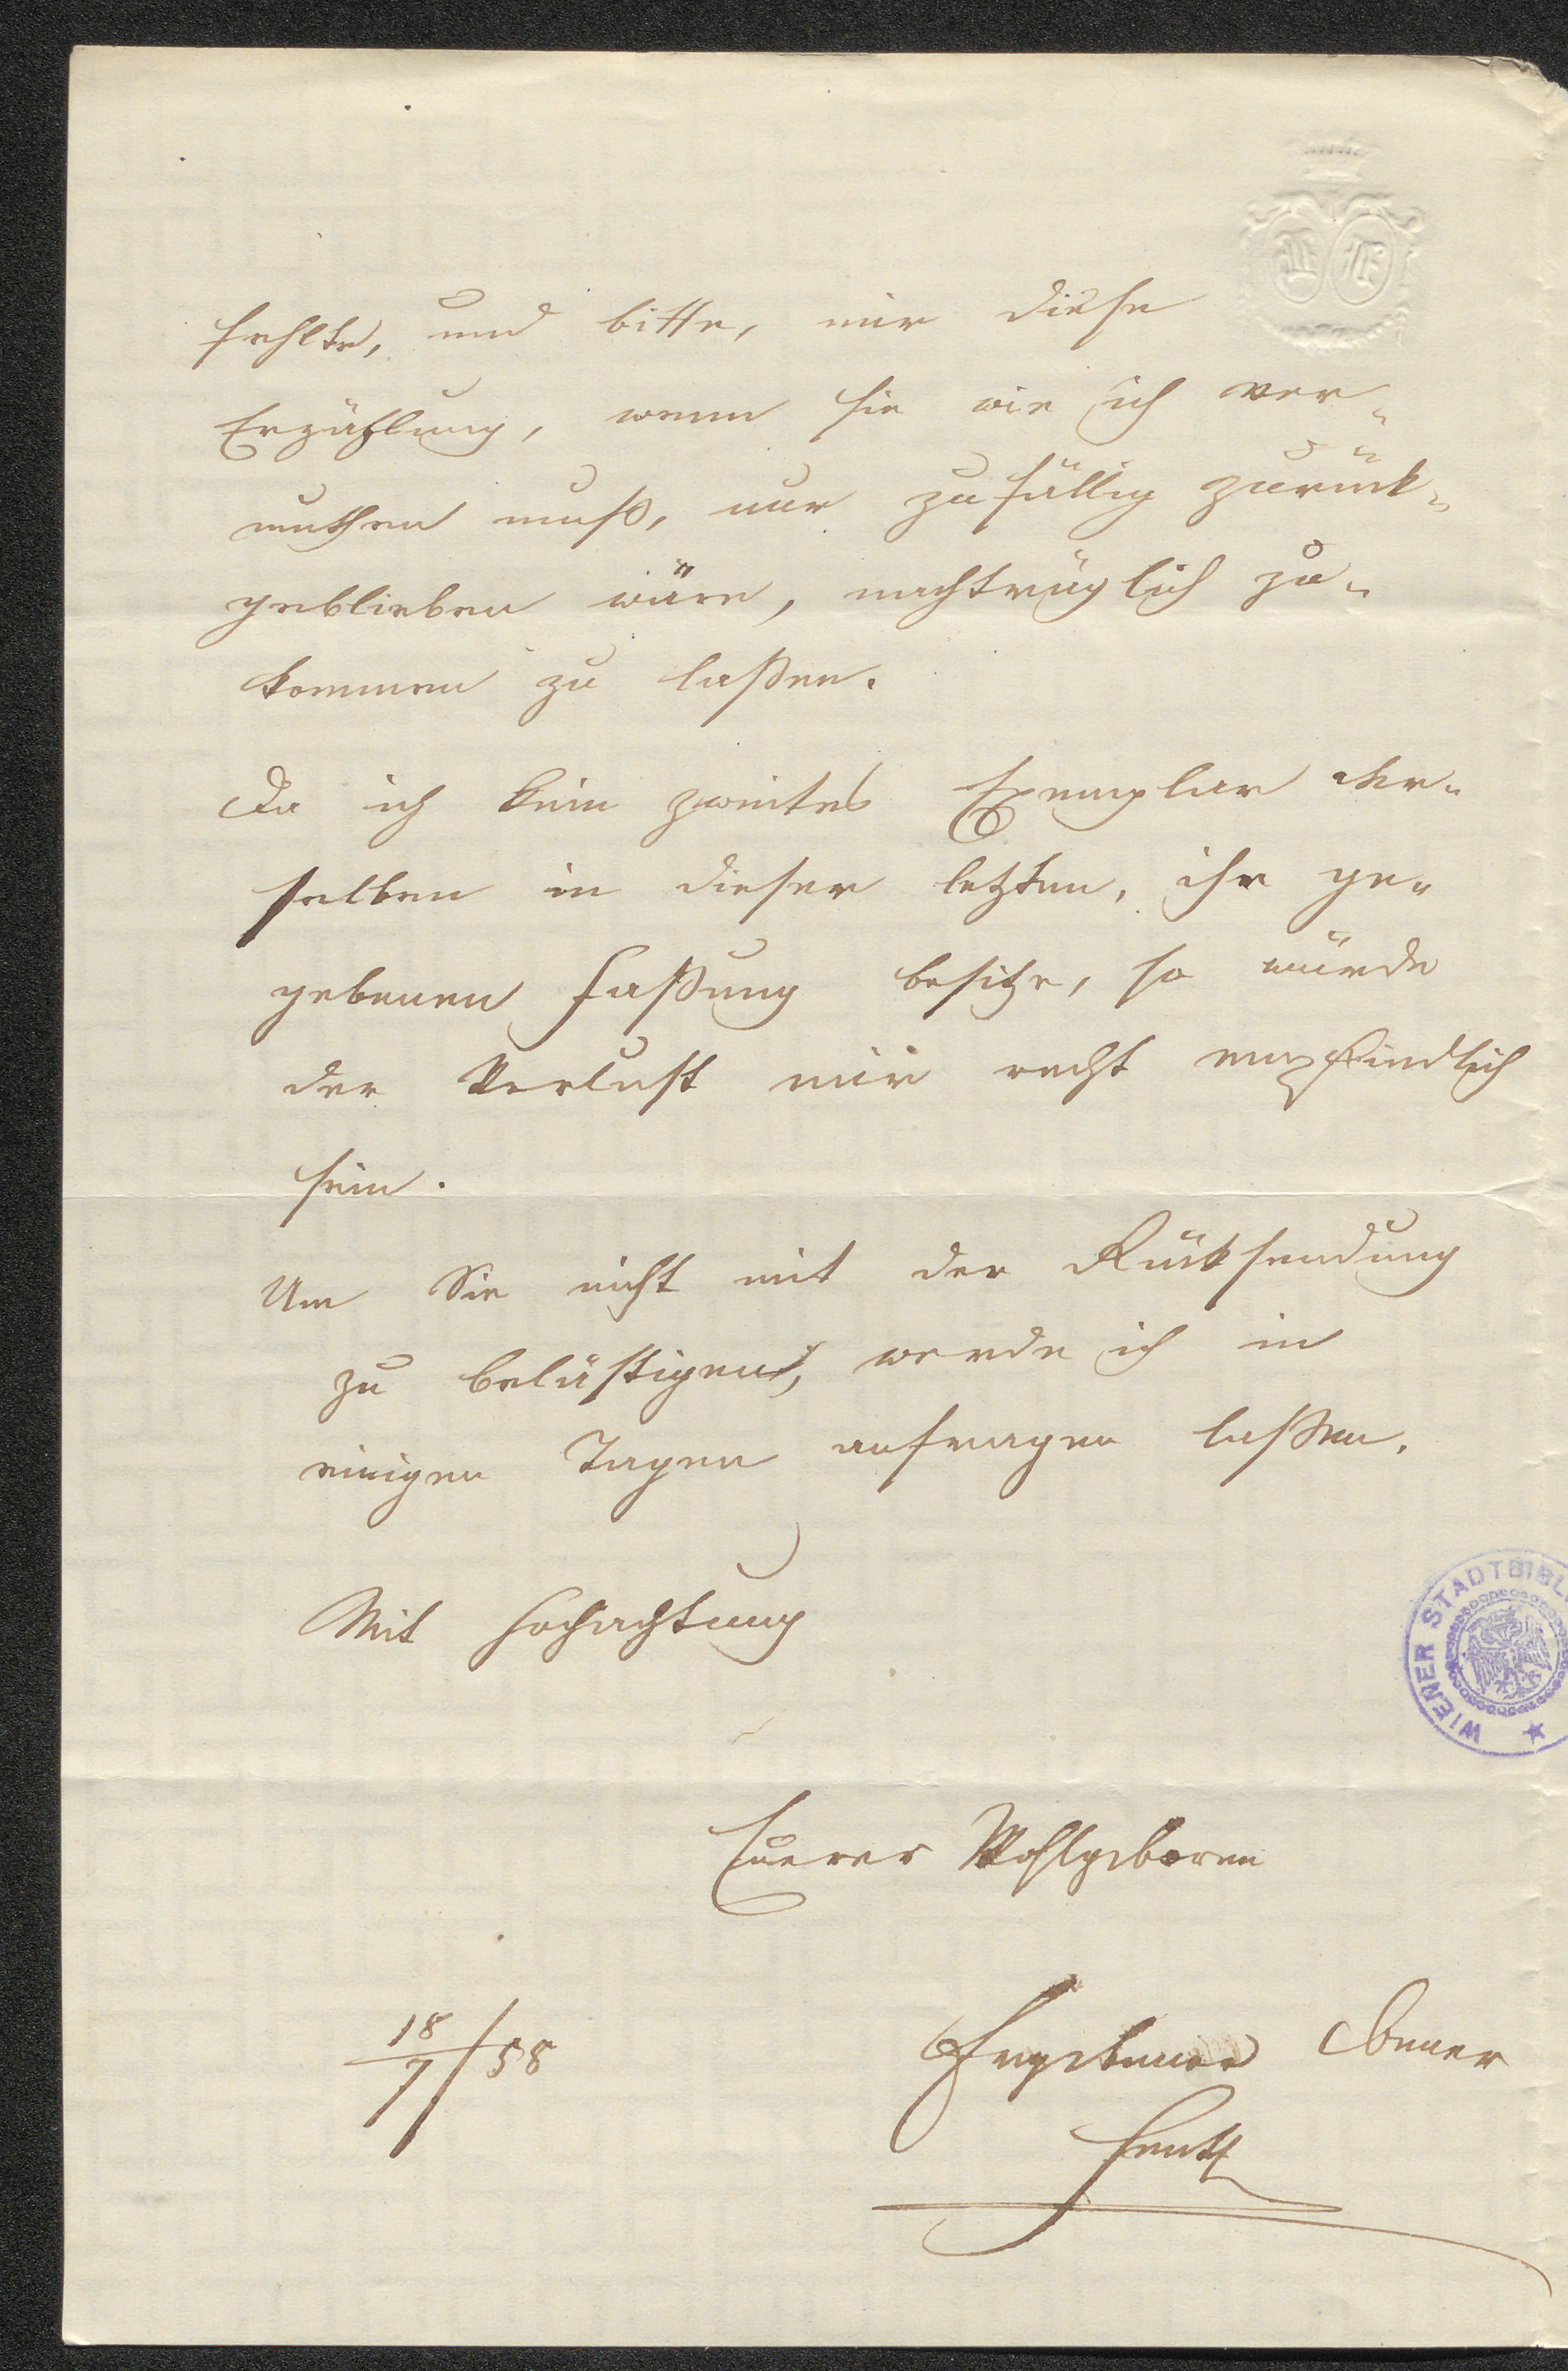 fehlte, und bitte, mir diese
Erzählung, wenn sie wie ich ver-
muthen muß, nur zufällig zurück-
geblieben wäre, nachträglich zu-
kommen zu laßen.
Da ich kein zweites Exemplar der-
selben in dieser letzten, ihr ge-
gebenen Faßung besitze, so würde
der Verlust mir recht empfindlich
sein.
Um Sie nicht mit der Rücksendung
zu belästigen, werde ich in
einigen Tagen anfragen laßen.
Mit Hochachtung
Euerer Wohlgeboren
18/7/58
Ergebener Diener
WIENER STADTBIBL